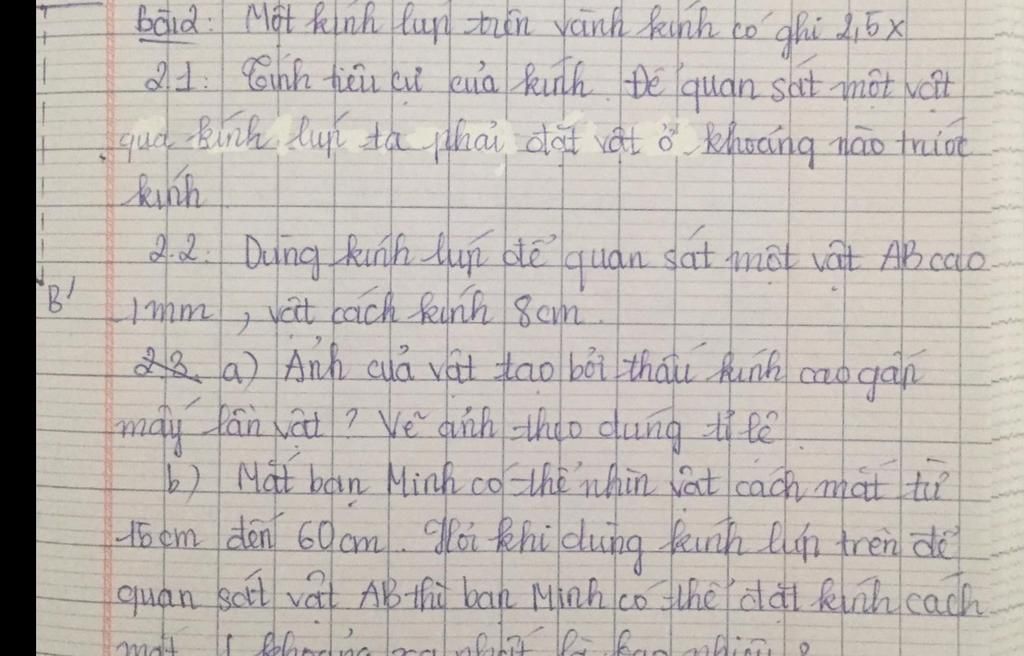 Bài 2: Một kính lúp trên vành kính có ghi 2,5x
2.1: Tính tiêu cự của kính. Để quan sát một vật
qua kính lúp ta phải đặt vật ở khoảng nào trước
kính
2.2: Dùng kính lúp để quan sát một vật AB cao
B'
1mm, vật cách kính 8cm.
2.3. a) Ảnh của vật tạo bởi thấu kính cao gấp
mấy lần vật? Vẽ ảnh theo đúng tỉ lệ
b) Mắt bạn Minh có thể nhìn vật cách mắt từ
15cm đến 60cm. Hỏi khi dùng kính lúp trên để
quan sát vật AB thì bạn Minh có thể đặt kính cách
mắt 1 khoảng xa nhất là bao nhiêu?